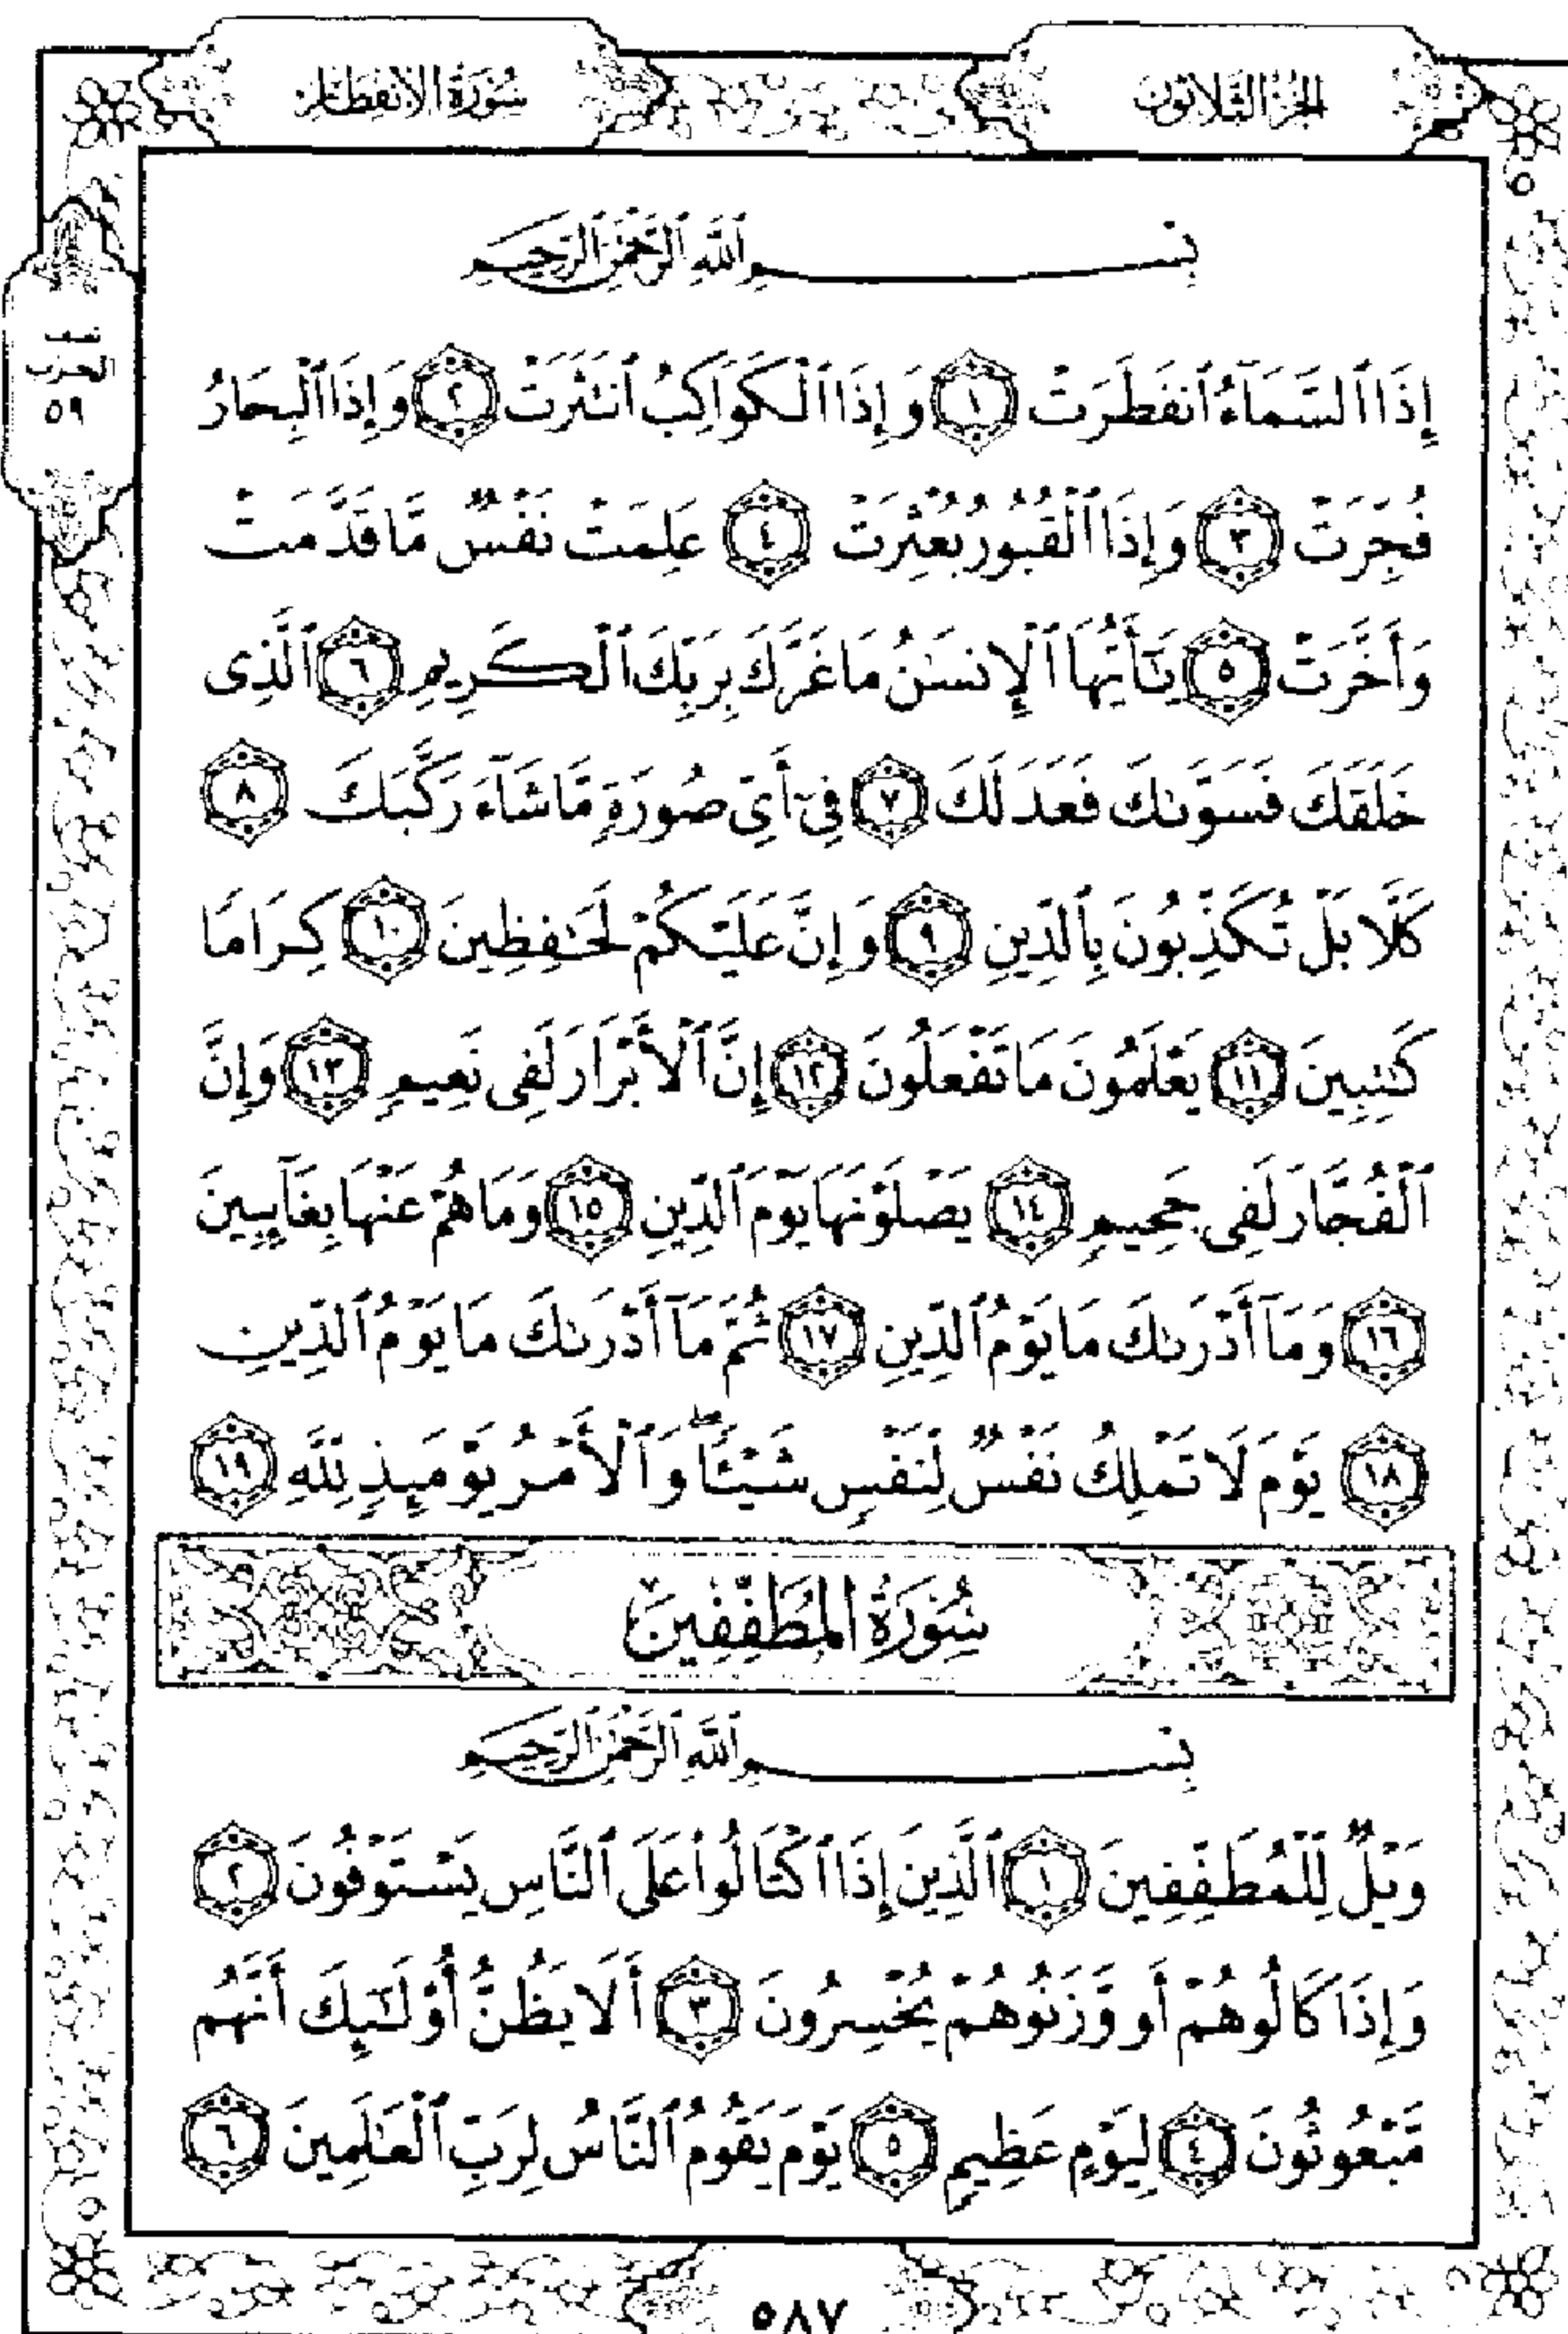 الجزء الثلاثون
سورة الانفطار
نصف
الحزب
٥٩
بِسْمِ ٱللَّهِ ٱلرَّحْمَٰنِ ٱلرَّحِيمِ
إِذَا ٱلسَّمَآءُ ٱنفَطَرَتْ ١ وَإِذَا ٱلْكَوَاكِبُ ٱنتَثَرَتْ ٢ وَإِذَا ٱلْبِحَارُ
فُجِّرَتْ ٣ وَإِذَا ٱلْقُبُورُ بُعْثِرَتْ ٤ عَلِمَتْ نَفْسٌ مَّا قَدَّمَتْ
وَأَخَّرَتْ ٥ يَٰٓأَيُّهَا ٱلْإِنسَٰنُ مَا غَرَّكَ بِرَبِّكَ ٱلْكَرِيمِ ٦ ٱلَّذِى
خَلَقَكَ فَسَوَّىٰكَ فَعَدَلَكَ ٧ فِىٓ أَىِّ صُورَةٍ مَّا شَآءَ رَكَّبَكَ ٨
كَلَّا بَلْ تُكَذِّبُونَ بِٱلدِّينِ ٩ وَإِنَّ عَلَيْكُمْ لَحَٰفِظِينَ ١٠ كِرَامًا
كَٰتِبِينَ ١١ يَعْلَمُونَ مَا تَفْعَلُونَ ١٢ إِنَّ ٱلْأَبْرَارَ لَفِى نَعِيمٍ ١٣ وَإِنَّ
ٱلْفُجَّارَ لَفِى جَحِيمٍ ١٤ يَصْلَوْنَهَا يَوْمَ ٱلدِّينِ ١٥ وَمَا هُمْ عَنْهَا بِغَآئِبِينَ
١٦ وَمَآ أَدْرَىٰكَ مَا يَوْمُ ٱلدِّينِ ١٧ ثُمَّ مَآ أَدْرَىٰكَ مَا يَوْمُ ٱلدِّينِ
١٨ يَوْمَ لَا تَمْلِكُ نَفْسٌ لِّنَفْسٍ شَيْـًٔا ۖ وَٱلْأَمْرُ يَوْمَئِذٍ لِّلَّهِ ١٩
سُورَةُ المُطَفِّفِينَ
بِسْمِ ٱللَّهِ ٱلرَّحْمَٰنِ ٱلرَّحِيمِ
وَيْلٌ لِّلْمُطَفِّفِينَ ١ ٱلَّذِينَ إِذَا ٱكْتَالُوا۟ عَلَى ٱلنَّاسِ يَسْتَوْفُونَ ٢
وَإِذَا كَالُوهُمْ أَو وَّزَنُوهُمْ يُخْسِرُونَ ٣ أَلَا يَظُنُّ أُو۟لَٰٓئِكَ أَنَّهُم
مَّبْعُوثُونَ ٤ لِيَوْمٍ عَظِيمٍ ٥ يَوْمَ يَقُومُ ٱلنَّاسُ لِرَبِّ ٱلْعَٰلَمِينَ ٦
٥٨٧